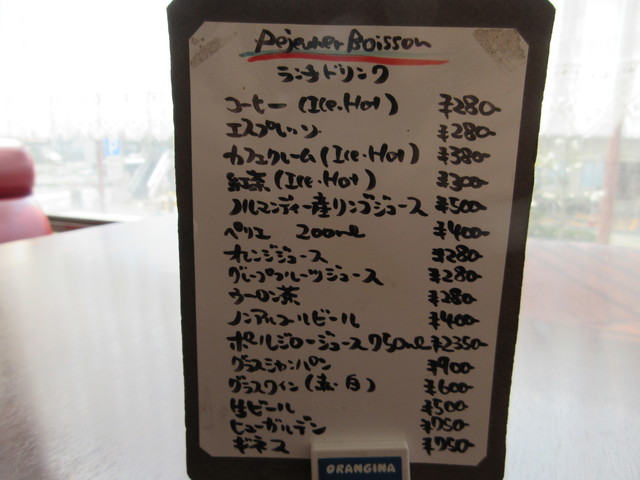 Déjeuner Boisson
ランチドリンク
コーヒー (Ice.Hot) ¥280-
エスプレッソ ¥280-
カフェクレーム (Ice.Hot) ¥380-
紅茶 (Ice.Hot) ¥300-
ノルマンディー産リンゴジュース ¥500-
ペリエ 200ml ¥400-
オレンジジュース ¥280-
グレープフルーツジュース ¥280-
ウーロン茶 ¥280-
ノンアルコールビール ¥400-
ポールジロージュース750ml ¥2350-
グラスシャンパン ¥900-
グラスワイン (赤.白) ¥600-
生ビール ¥500-
ヒューガルデン ¥750-
ギネス ¥750-
ORANGINA